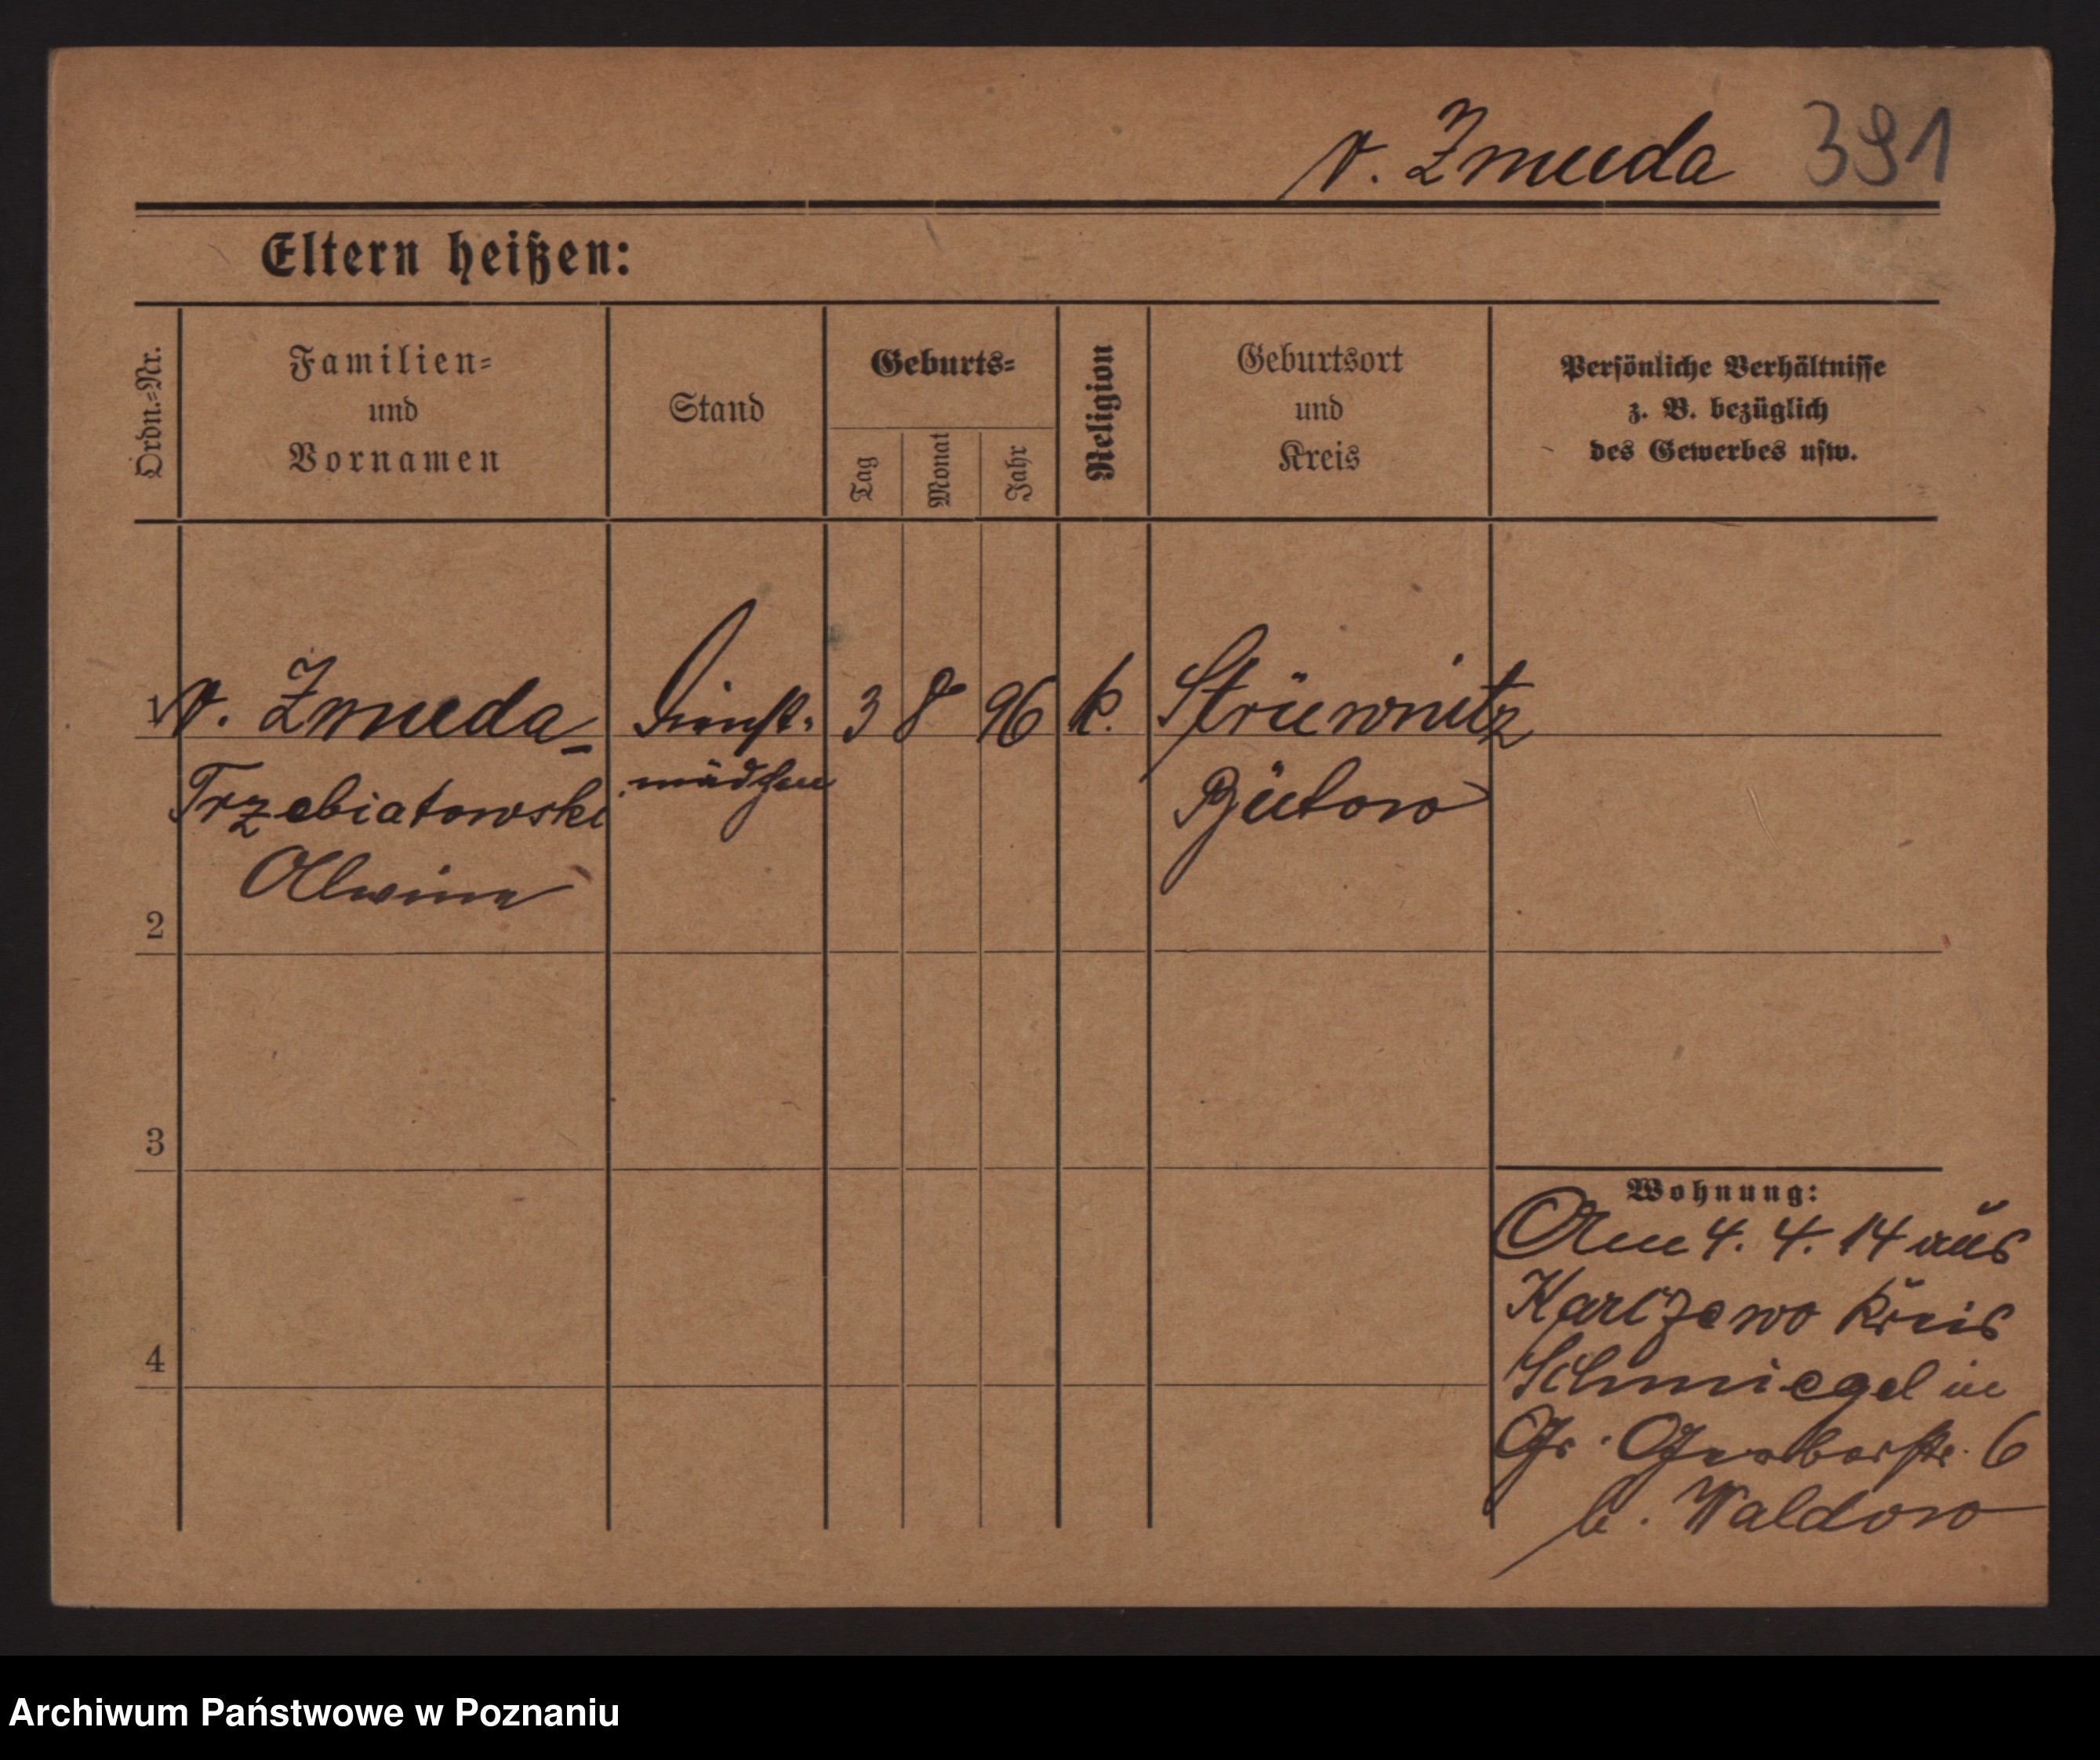 v. Zmuda 391
Eltern heißen:
Ordn.-Nr.
Familien-
und
Vornamen
Stand
Geburts-
Tag
Monat
Jahr
Religion
Geburtsort
und
Kreis
Persönliche Verhältnisse
z. B. bezüglich
des Gewerbes usw.
1 v. Zmuda- Dienst- 3 8 96 k. Strüwnitz
Trzebiatowski mädchen Bütow
Alwine
2
3
4
Wohnung:
Am 4. 4. 14 aus
Karczewo Kreis
Schmiegel in
Gr. Gerberstr. 6
b. Waldow
Archiwum Państwowe w Poznaniu